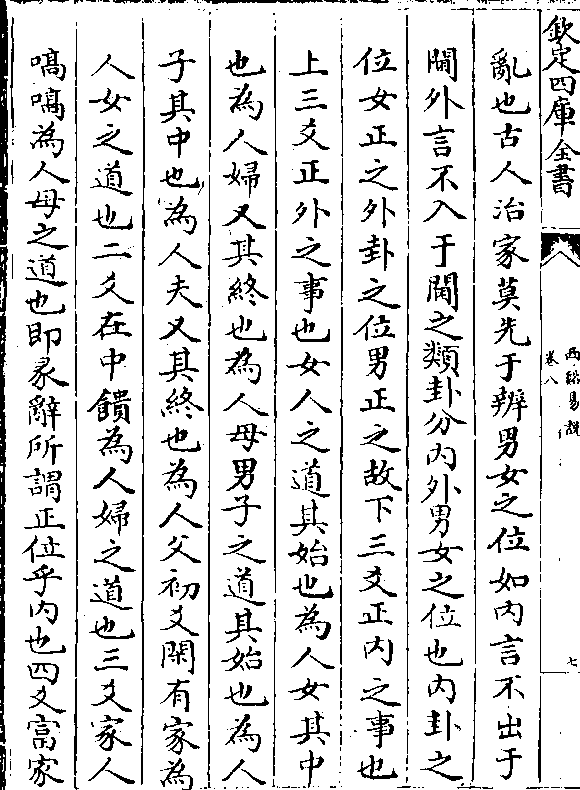 欽定四庫全書
西谿易說
卷八
七
亂也古人治家莫先于辨男女之位如内言不出于
閫外言不入于閫之類卦分内外男女之位也内卦之
位女正之外卦之位男正之故下三爻正内之事也
上三爻正外之事也女人之道其始也為人女其中
也為人婦又其終也為人母男子之道其始也為人
子其中也為人夫又其終也為人父初爻閑有家為
人女之道也二爻在中饋為人婦之道也三爻家人
嗃嗃為人母之道也即彖辭所謂正位乎内也四爻富家